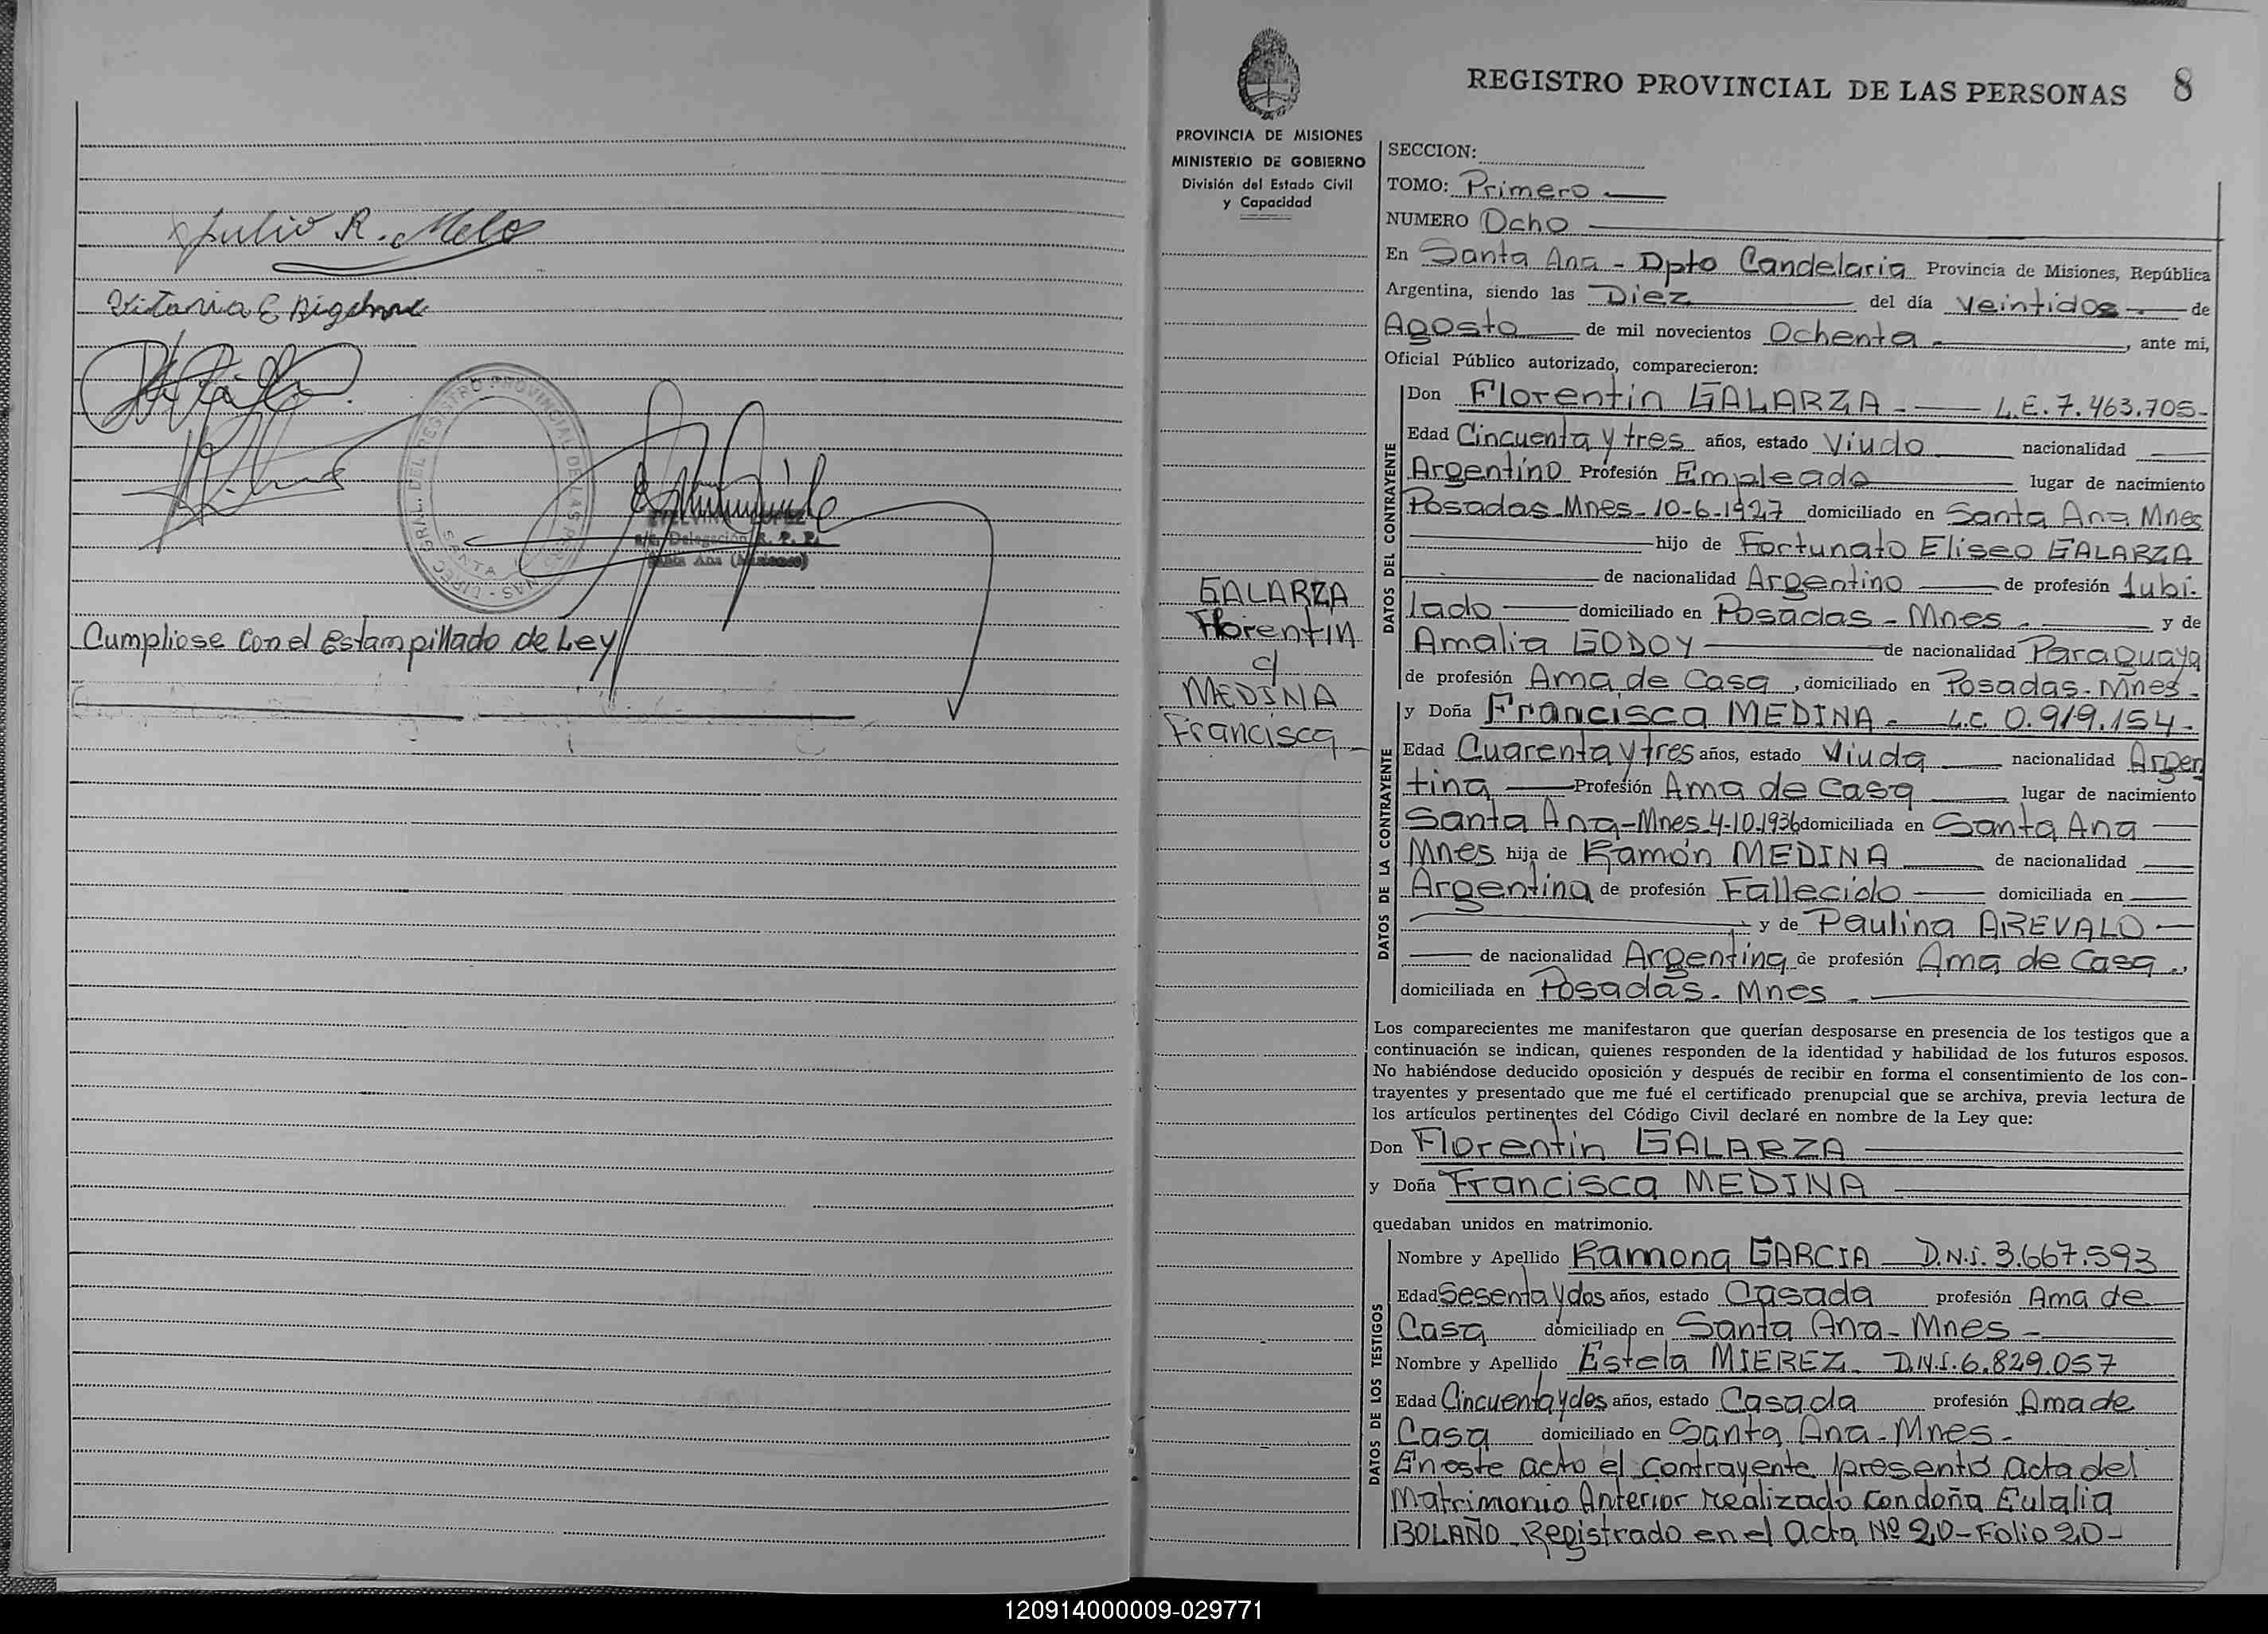 Julio R. Melo
Cumpliose con el Estampillado de Ley
GRAL. DEL REGISTRO PROVINCIAL DE LAS PERSONAS
SANTA
LOPEZ
Delegación R. P. P.
Santa Ana (Misiones)
PROVINCIA DE MISIONES
MINISTERIO DE GOBIERNO
División del Estado Civil
y Capacidad
GALARZA
Florentin
c/
MEDINA
Francisca
REGISTRO PROVINCIAL DE LAS PERSONAS 8
SECCION:
TOMO: Primero
NUMERO Ocho
En Santa Ana - Dpto Candelaria Provincia de Misiones, República
Argentina, siendo las Diez del día veintidos de
Agosto de mil novecientos Ochenta, ante mi,
Oficial Público autorizado, comparecieron:
DATOS DEL CONTRAYENTE
Don Florentin GALARZA - L.E. 7.463.705-
Edad Cincuenta y tres años, estado Viudo nacionalidad
Argentino Profesión Empleado lugar de nacimiento
Posadas-Mnes-10-6-1927 domiciliado en Santa Ana Mnes
hijo de Fortunato Eliseo GALARZA
de nacionalidad Argentino de profesión Jubi-
lado domiciliado en Posadas - Mnes - y de
Amalia GODOY de nacionalidad Paraguaya
de profesión Ama de Casa, domiciliado en Posadas-Mnes-
DATOS DE LA CONTRAYENTE
y Doña Francisca MEDINA - L.C. 0.919.154-
Edad Cuarenta y tres años, estado Viuda nacionalidad Argen
tina Profesión Ama de Casa lugar de nacimiento
Santa Ana-Mnes 4-10-1936 domiciliada en Santa Ana
Mnes hija de Ramón MEDINA de nacionalidad
Argentina de profesión Fallecido domiciliada en
y de Paulina AREVALO
de nacionalidad Argentina de profesión Ama de Casa.,
domiciliada en Posadas - Mnes -
Los comparecientes me manifestaron que querían desposarse en presencia de los testigos que a
continuación se indican, quienes responden de la identidad y habilidad de los futuros esposos.
No habiéndose deducido oposición y después de recibir en forma el consentimiento de los con-
trayentes y presentado que me fué el certificado prenupcial que se archiva, previa lectura de
los artículos pertinentes del Código Civil declaré en nombre de la Ley que:
Don Florentin GALARZA
y Doña Francisca MEDINA
quedaban unidos en matrimonio.
DATOS DE LOS TESTIGOS
Nombre y Apellido Ramona GARCIA D.N.I. 3.667.593
Edad Sesenta y dos años, estado Casada profesión Ama de
Casa domiciliado en Santa Ana - Mnes -
Nombre y Apellido Estela MIEREZ D.N.I. 6.829.057
Edad Cincuenta y dos años, estado Casada profesión Ama de
Casa domiciliado en Santa Ana - Mnes -
En este acto el contrayente presentó acta del
Matrimonio Anterior realizado con doña Eulalia
BOLAÑO - Registrado en el acta Nº 20-Folio 20-
120914000009-029771